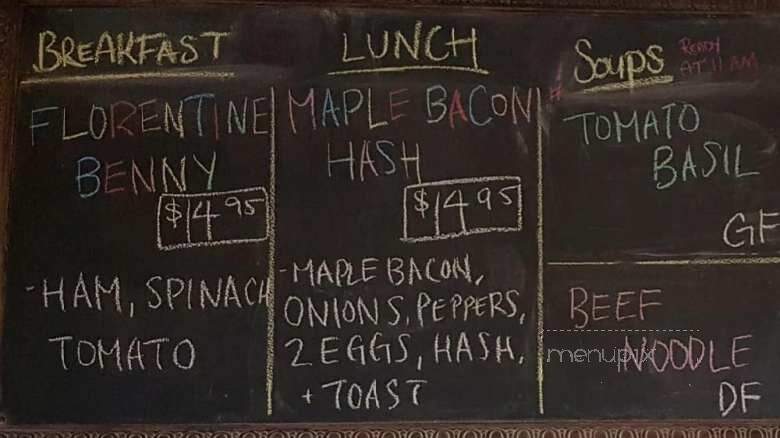 BREAKFAST
FLORENTINE
BENNY
$14.95
-HAM, SPINACH
TOMATO
LUNCH
MAPLE BACON
HASH
$14.95
-MAPLE BACON,
ONIONS, PEPPERS,
2 EGGS, HASH,
+ TOAST
Soups
READY
AT 11 AM
TOMATO
BASIL
GF
BEEF
NOODLE
DF
menupix